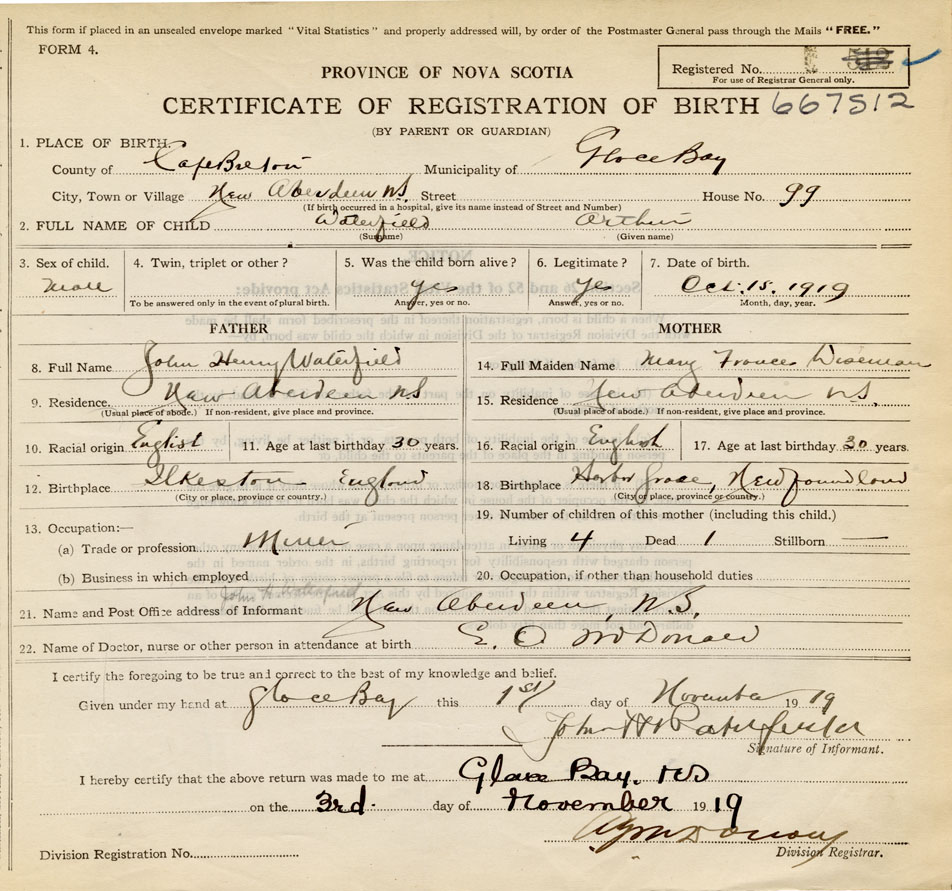 This form if placed in an unsealed envelope marked "Vital Statistics" and properly addressed will, by order of the Postmaster General pass through the Mails "FREE."
FORM 4.
PROVINCE OF NOVA SCOTIA
Registered No. 512
For use of Registrar General only.
CERTIFICATE OF REGISTRATION OF BIRTH 667512
(BY PARENT OR GUARDIAN)
1. PLACE OF BIRTH
County of Cape Breton Municipality of Glace Bay
City, Town or Village New Aberdeen NS Street House No. 99
(If birth occurred in a hospital, give its name instead of Street and Number)
2. FULL NAME OF CHILD Waterfield Arthur
(Surname) (Given name)
3. Sex of child. 4. Twin, triplet or other? 5. Was the child born alive? 6. Legitimate? 7. Date of birth.
Male Yes Yes Oct. 15. 1919
To be answered only in the event of plural birth. Answer, yes or no. Answer, yes or no. Month, day, year.
FATHER MOTHER
8. Full Name John Henry Waterfield 14. Full Maiden Name Mary Frances Wiseman
9. Residence. New Aberdeen NS 15. Residence New Aberdeen NS.
(Usual place of abode.) If non-resident, give place and province. (Usual place of abode.) If non-resident, give place and province.
10. Racial origin English 11. Age at last birthday 30 years. 16. Racial origin English 17. Age at last birthday 30 years.
12. Birthplace Ilkeston England 18. Birthplace Harbor Grace, Newfoundland
(City or place, province or country.) (City or place, province or country.)
13. Occupation:— 19. Number of children of this mother (including this child.)
(a) Trade or profession Miner Living 4 Dead 1 Stillborn —
(b) Business in which employed 20. Occupation, if other than household duties
John H Waterfield
21. Name and Post Office address of Informant New Aberdeen, N.S.
22. Name of Doctor, nurse or other person in attendance at birth E. O. McDonald
I certify the foregoing to be true and correct to the best of my knowledge and belief.
Given under my hand at Glace Bay this 1st day of November 1919
John H
Signature of Informant.
I hereby certify that the above return was made to me at Glace Bay. NS
on the 3rd. day of November 1919
Division Registration No. Division Registrar.